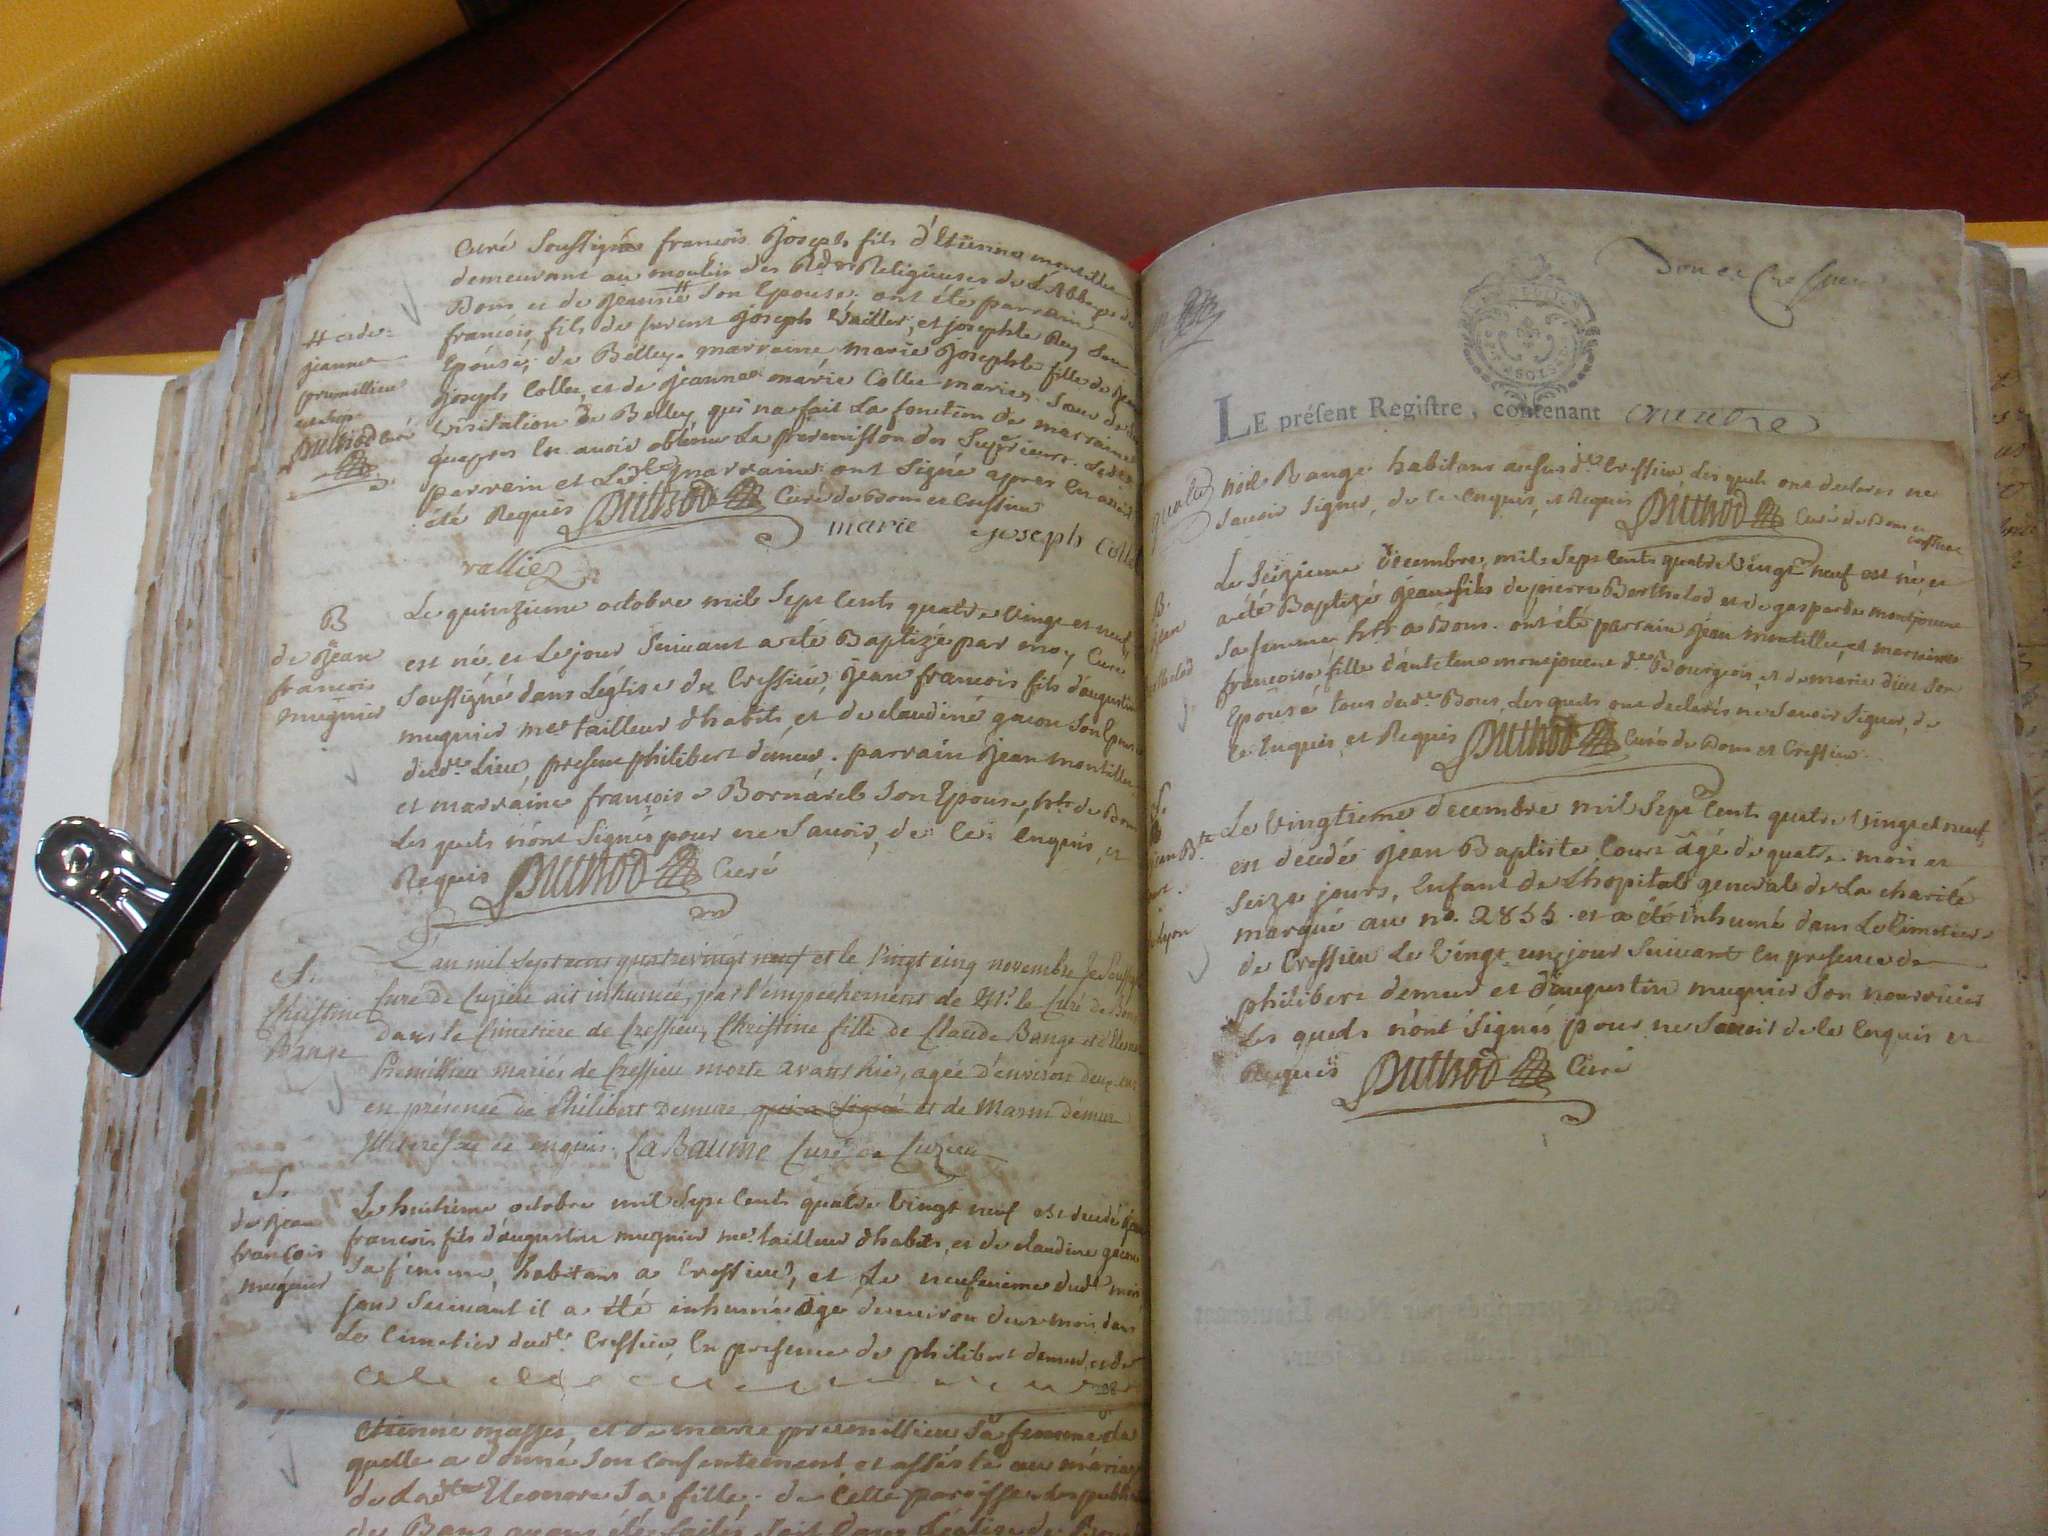 Curé Soussigné françois Joseph fils d'Etienne montillet
demeurant au moulin des Rdes Religieuses de L'Abbaye de
Bons et de Jeanne # Son Epouse. ont été parrain
françois fils de feu Joseph Vallier, et josephte Rey Son
Epouse, de Belley. marraine marie Josephte fille de
joseph Collet, et de Jeanne marie Collet mariés. Soeur de la
visitation de Belley qui n'a fait La fonction de marraine
qu'apres En avoir obtenu La permission des Supérieurs. Ledit
parrein et Lade marraine ont Signé apres En avoir
été Requis Duthod Curé de Bons et Cressieu
marie joseph Collet
vallier
# et de
jeanne
premillieu
Duthod Curé
B
de Jean
françois
mugnier
Le quinzieme octobre mil Sept Cents quatre Vingt et neuf
est né et Le jour Suivant a été Baptizé par moy Curé
Soussigné dans L'église de Cressieu, Jean françois fils d'augustin
mugnier me tailleur d'habits, et de claudine gacon Son Epouse
dudt Lieu, present philibert demeur. parrain Jean montillet
et marraine françoise Bornarel Son Epouse, hts de Bons
Les quels n'ont Signés pour ne Savoir, de Ce Enquis et
Requis Duthod Curé
S.
Christine
Bange
L'an mil sept cens quatre vingt neuf et le Vingt cinq novembre Je Soussigné
Curé de Cuzieu ait inhumée, par l'empechement de Mr. le Curé de Bons
dans le Cimetiere de Cressieu, Christine fille de Claude Bange et d'
Premillieu mariés de Cressieu morte avant hier, agée d'environ deux ans
en présence de Philibert Demeure qui a signé et de Marin démeur
de ce enquis. La Baume Curé de Cuzieu
S.
de Jean
françois
mugnier
Le huitieme octobre mil Sept Cents quatre Vingt neuf est decedé Jean
françois fils d'augustin mugnier me tailleur d'habits, et de claudine gacon
Sa femme, habitans a Cressieu, et Le neufvieme dudt mois
jour Suivant il a été inhumé âgé d'environ deux mois dans
Le Cimetier dudt Cressieu, En presence de philibert demeur, et de
298
Etienne masset, et de marie premillieu Sa femme la
quelle a donné Son Consentement et assisté au mariage
de Ladte Eleonore Sa fille. de Cette paroisse Les publications
de Bans ayans étés faites Soit dans L'église de Bons
Bons et Cressieu
LE présent Registre, contenant
noël Bange habitans audit Cressieu Les quels ont declarés ne
Savoir Signer, de Ce enquis, et Requis Duthod Curé de Bons et
Cressieu
B.
Jean
Bertholod
Le Seizieme Decembre mil Sept Cents quatre Vingt neuf est né, et
a été Baptizé Jean fils de pierre Bertholod et de gasparde montjouvent
Sa femme hts a Bons. ont été parrain Jean montillet, et marraine
françoise fille d'antelme monjouvent dt Bourgeois, et de marie dier Son
Epouse tous dudt Bons, Les quels ont declarés ne Savoir Signer, de
Ce Enquis et Requis Duthod Curé de Bons et Cressieu.
S.
jean Bte
Cour
de Lyon
Le Vingtieme decembre mil Sept Cents quatre Vingt et neuf,
est decedé Jean Baptiste Cour âgé de quatre mois et
Seize jours, Enfant de L'hopital general de La charité
marqué au no. 2855. et a été inhumé dans Le Cimetier
de Cressieu Le Vingt un jour Suivant En presence de
philibert demeur et d'augustin mugnier Son nourricier
Les quels n'ont Signés pour ne Savoir de Ce Enquis et
Requis Duthod Curé